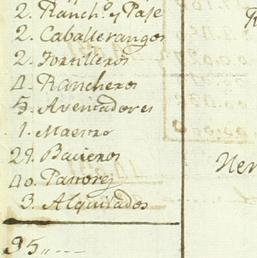 2. Ranch.o y Paje
2. Caballerangos
2. Tornilleros
4. Rancheros
5. Aventadores
1. Maestro
29. Baqueros
40. Pastores
3. Alquilados
95,,